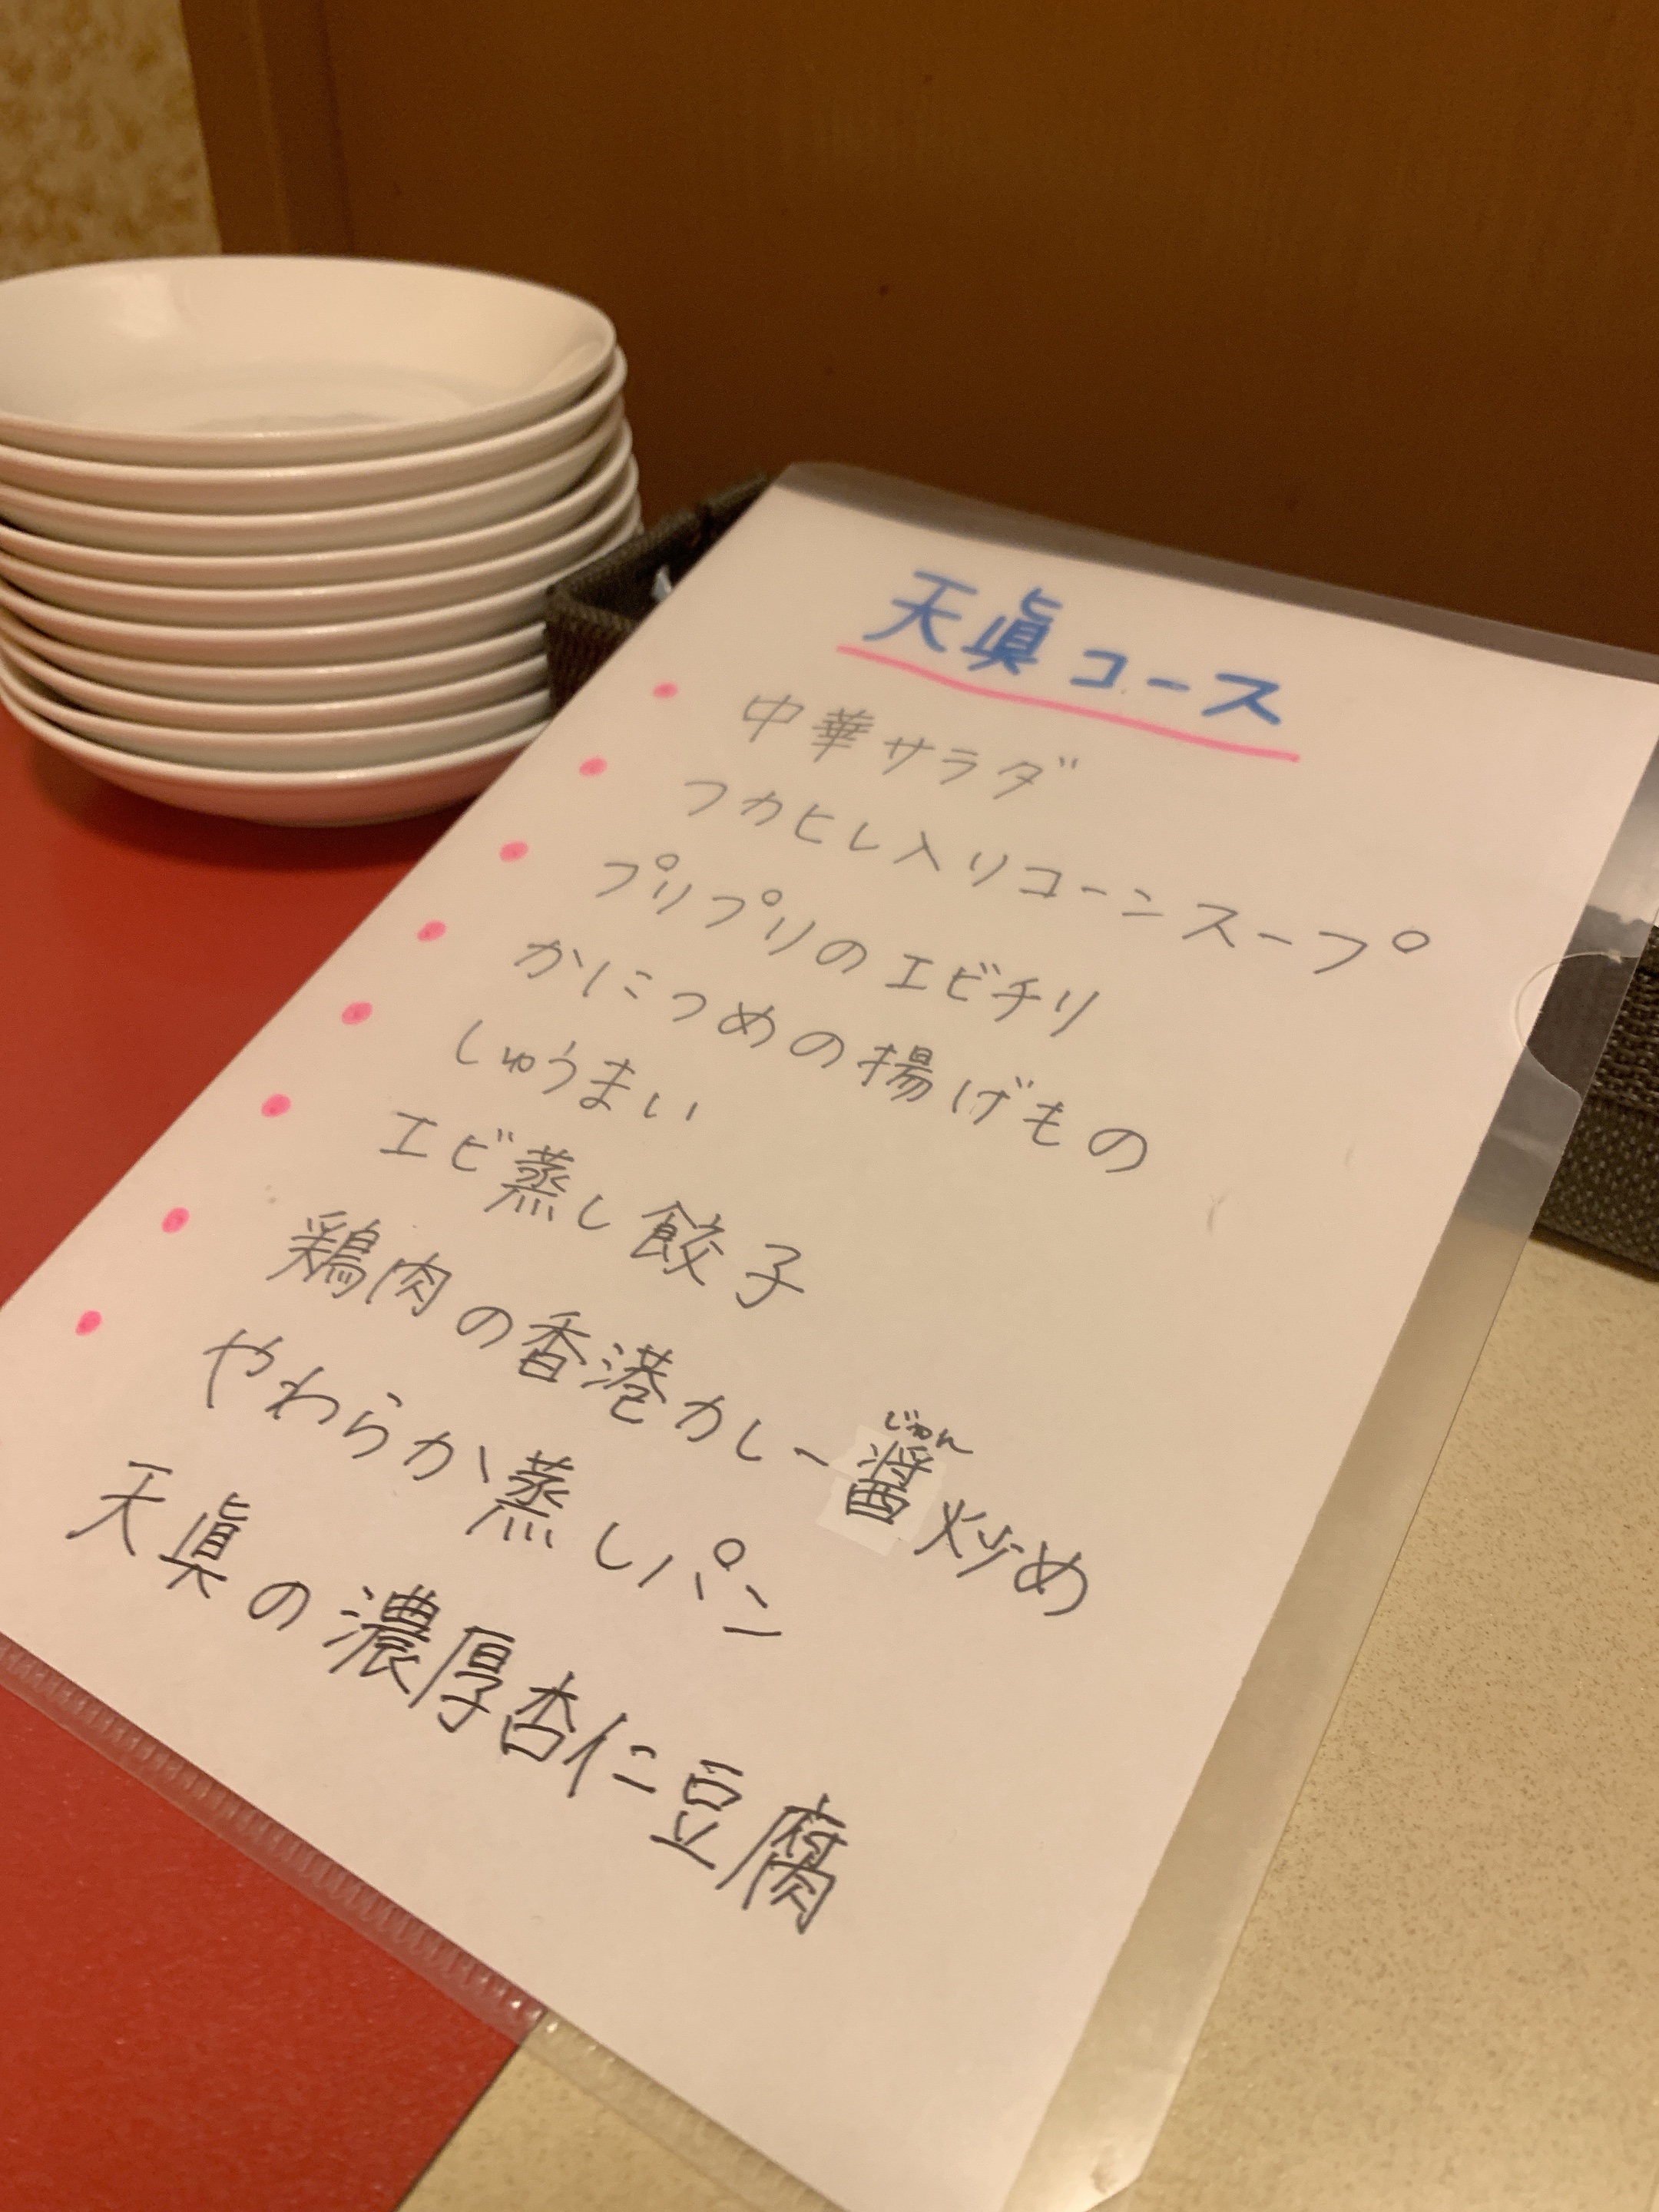 天眞コース
・中華サラダ
・フカヒレ入りコーンスープ
・プリプリのエビチリ
・かにつめの揚げもの
・しゅうまい
・エビ蒸し餃子
・鶏肉の香港カレー醤炒め
じゃん
・やわらか蒸しパン
天眞の濃厚杏仁豆腐